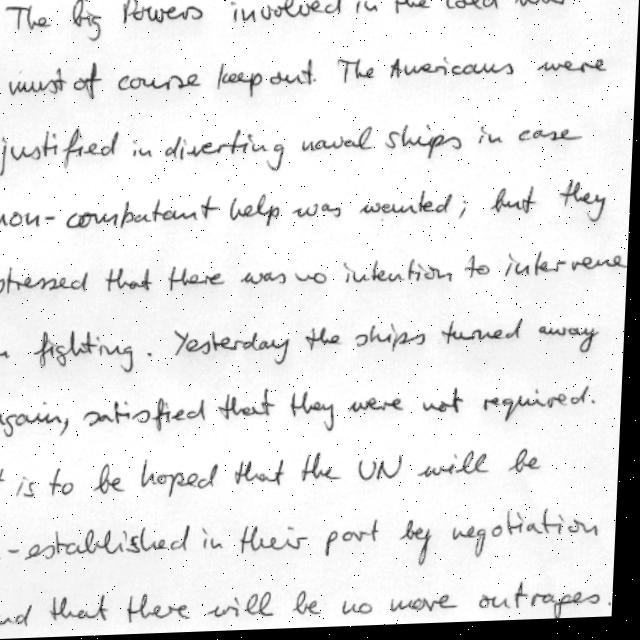 The big Powers involved in the cold war
must of course keep out. The Americans were
justified in diverting naval ships in case
non-combatant help was wanted; but they
stressed that there was no intention to intervene
fighting. Yesterday the ships turned away
again, satisfied that they were not required.
is to be hoped that the UN will be
-established in their port by negotiation
and that there will be no more outrages.